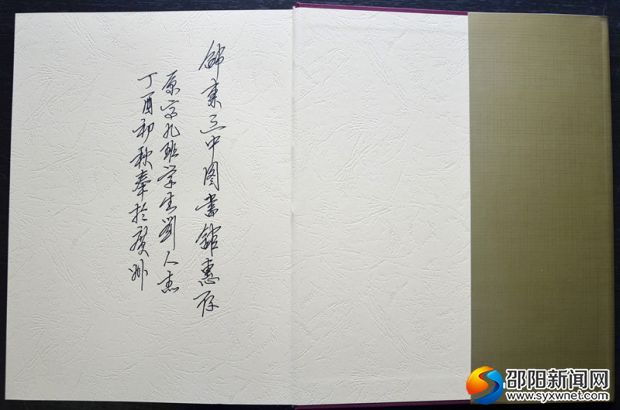 邵東三中图書館惠存
原高九班学生劉人杰
丁酉初秋奉於廣州
邵阳新闻网
www.syxwnet.com